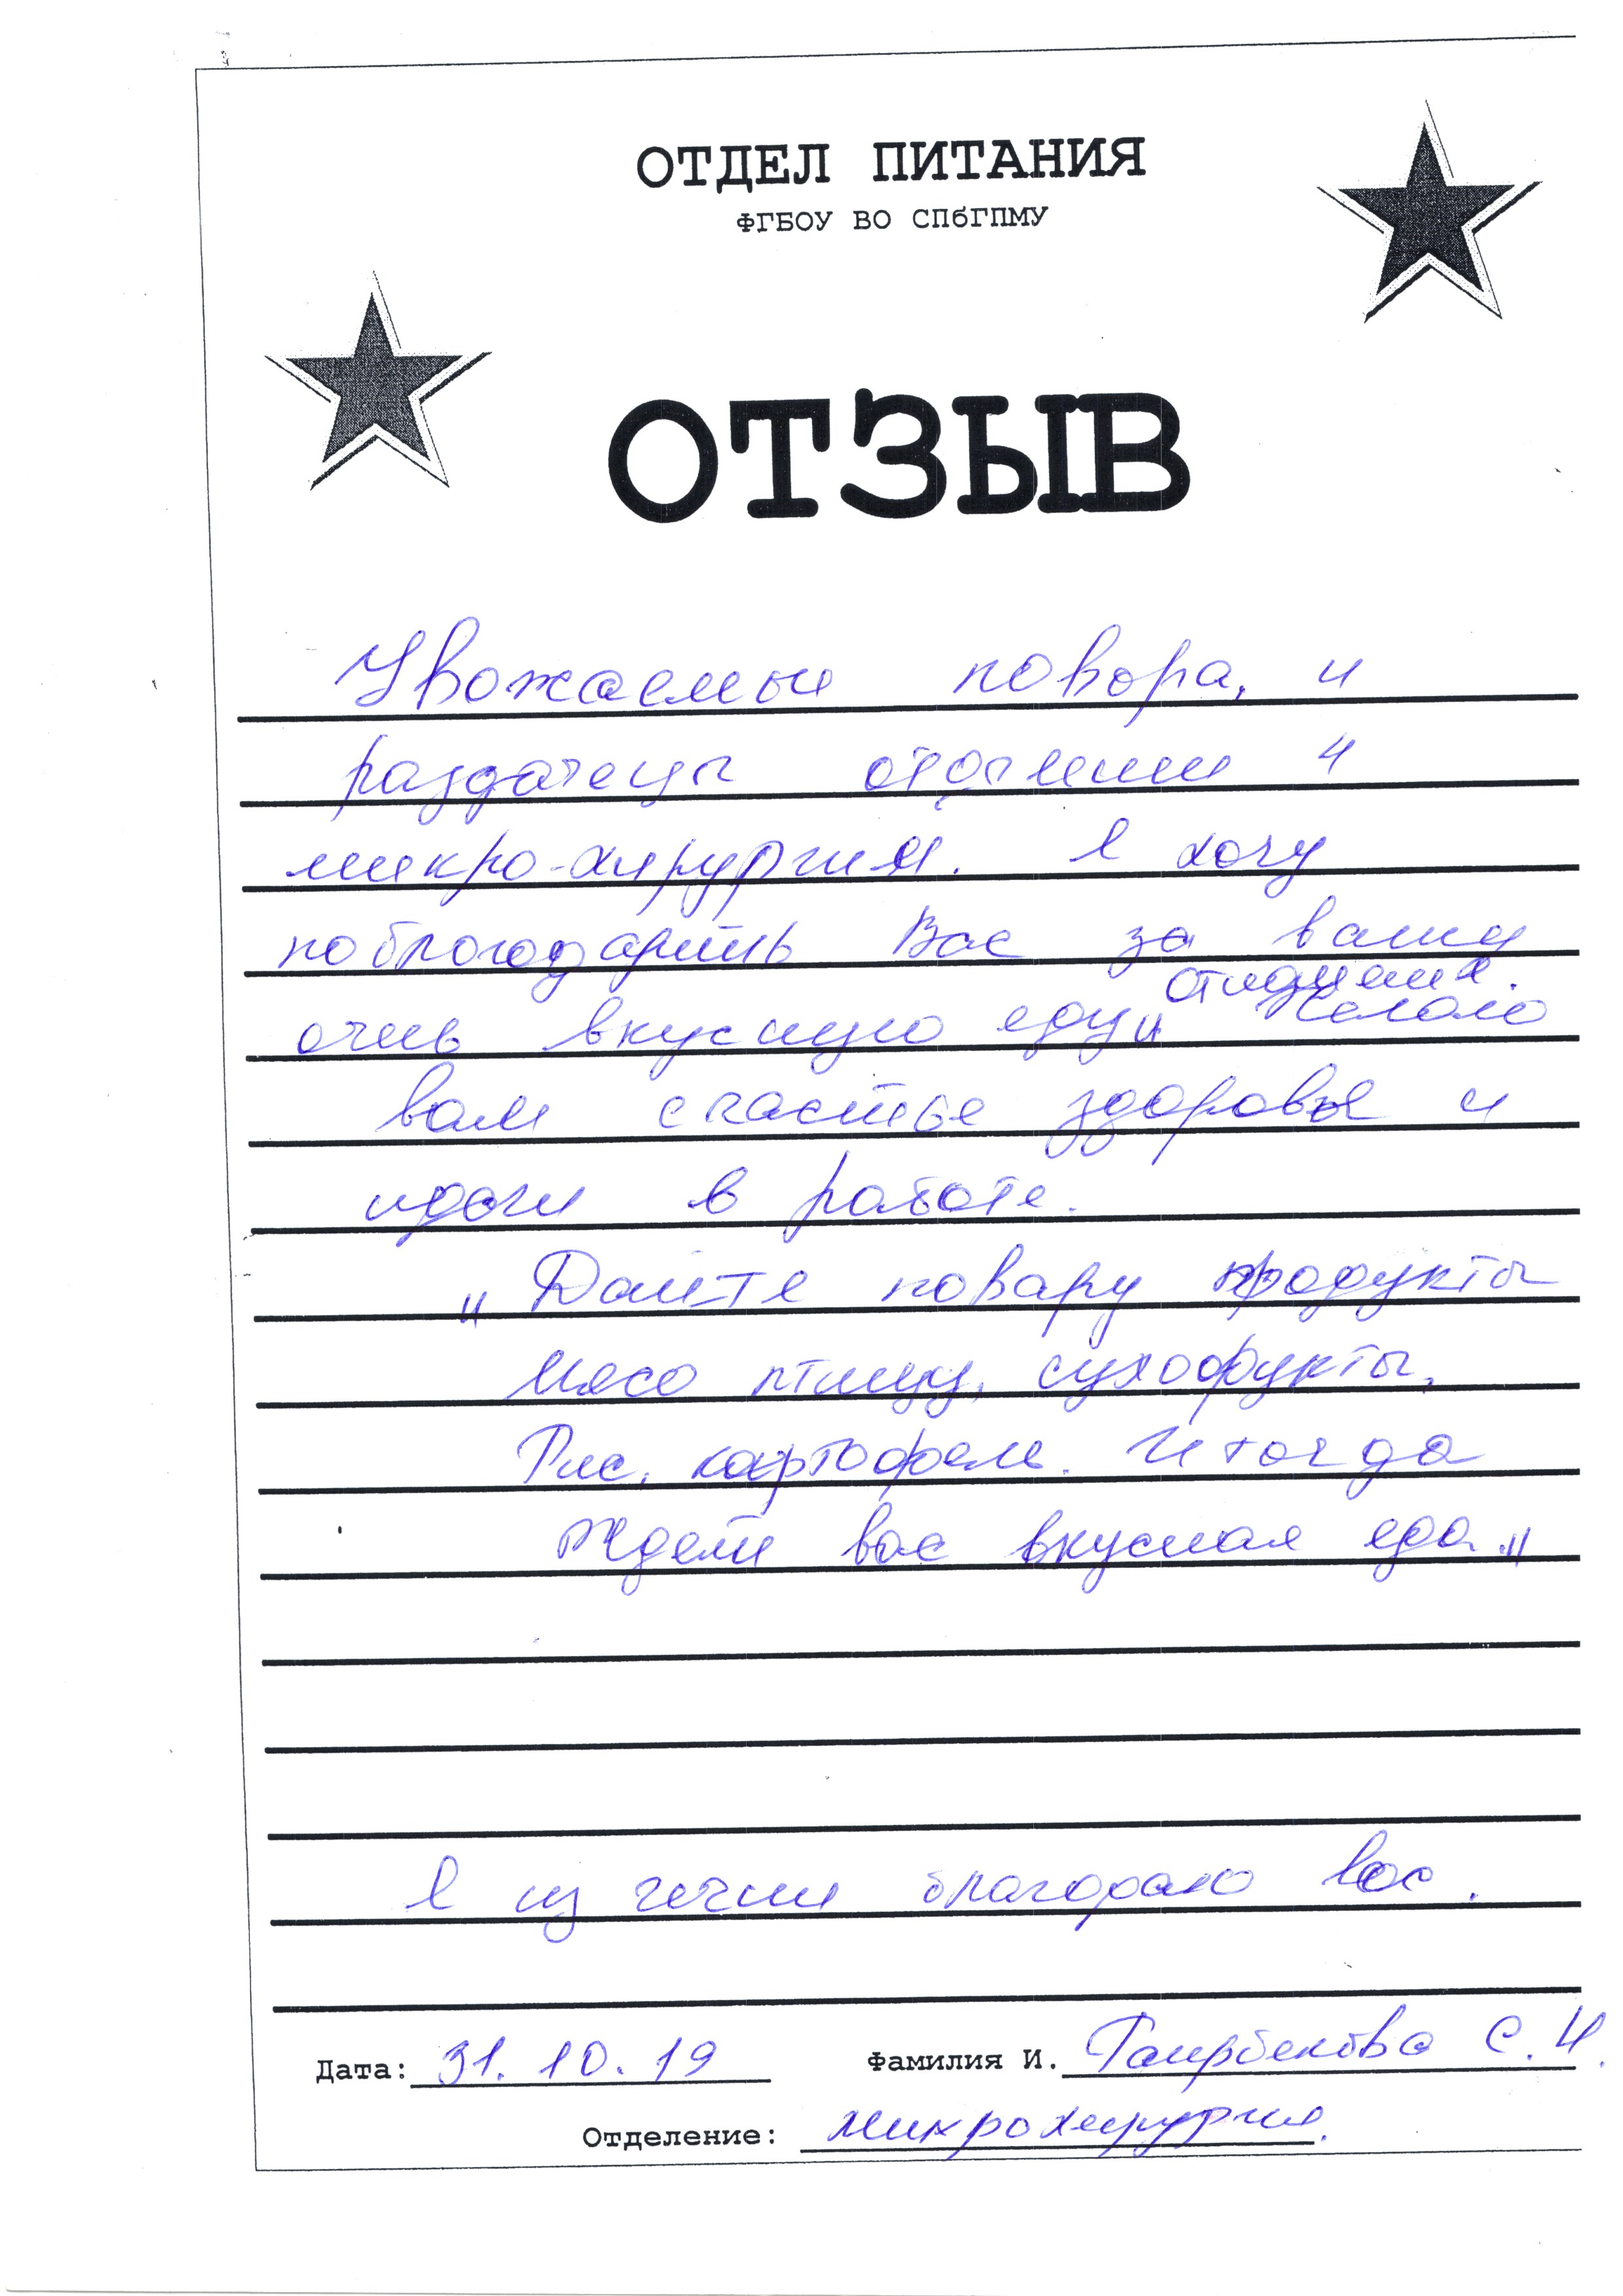 ОТДЕЛ ПИТАНИЯ
ФГБОУ ВО СПбГПМУ
ОТЗЫВ
Уважаемые повора, и
раздатецы отделении
микро-хирургия. Я хочу
поблогодарить Вас за вашу
отношения.
очень вкусную еду и Желаю
вам счастье здоровья и
удачи в работе.
"Дайте повару продукты
Мясо птицу, сухофрукты,
Рис, картофель. И тогда
Ждет вас вкусная еда."
Я из чечни благораю вас.
Дата: 31.10.19 Фамилия И. Таирбекова С. И.
Отделение: микрохирургия.